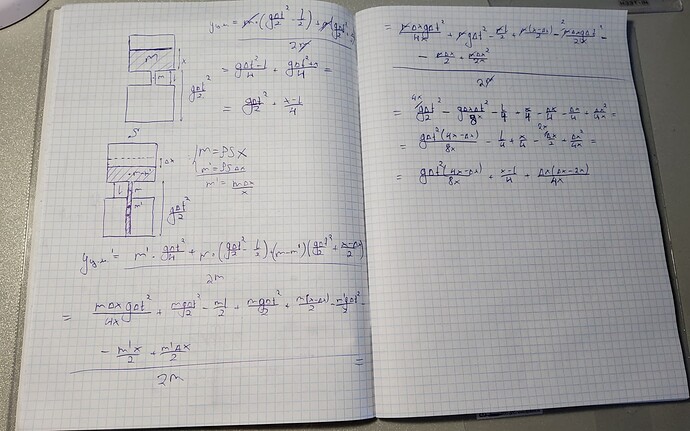 yц.м = m·(gΔt²/2 - l/2) + m(gΔt²/2
2m
= gΔt²-l/4 + gΔt²+x/4 =
= gΔt²/2 + x-l/4
m
x
m
l
gΔt²/2
S
Δx
m-m'
l
m
m'
gΔt²/2
m = ρSx
m' = ρSΔx
m' = mΔx/x
yц.м' = m'·gΔt²/4 + m·(gΔt²/2 - l/2) + (m-m')(gΔt²/2 + x-Δx/2)
2m
= mΔxgΔt²/4x + mgΔt²/2 - ml/2 + mgΔt²/2 + m(x-Δx)/2 - m'gΔt²/2 -
- m'x/2 + m'Δx/2 =
2m
= mΔxgΔt²/4x + mgΔt² - ml/2 + m(x-Δx)/2 - mΔxgΔt²/2x -
- mΔx/2 + mΔx²/2x
2m
= gΔt²/2 - gΔxΔt²/8x - l/4 + x/4 - Δx/4 - Δx/4 + Δx²/4x =
= gΔt²(4x-Δx)/8x - l/4 + x/4 - Δx/2 + Δx²/4x =
= gΔt²(4x-Δx)/8x + x-l/4 + Δx(Δx-2x)/4x